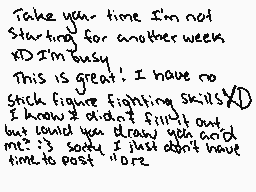 Take your time I'm not
starting for another week
XD I'm busy
This is great! I have no
stick figure fighting skills XD
I know I didn't fill it out
but could you draw you and
me? :3 sorry I just don't have
time to post "orz